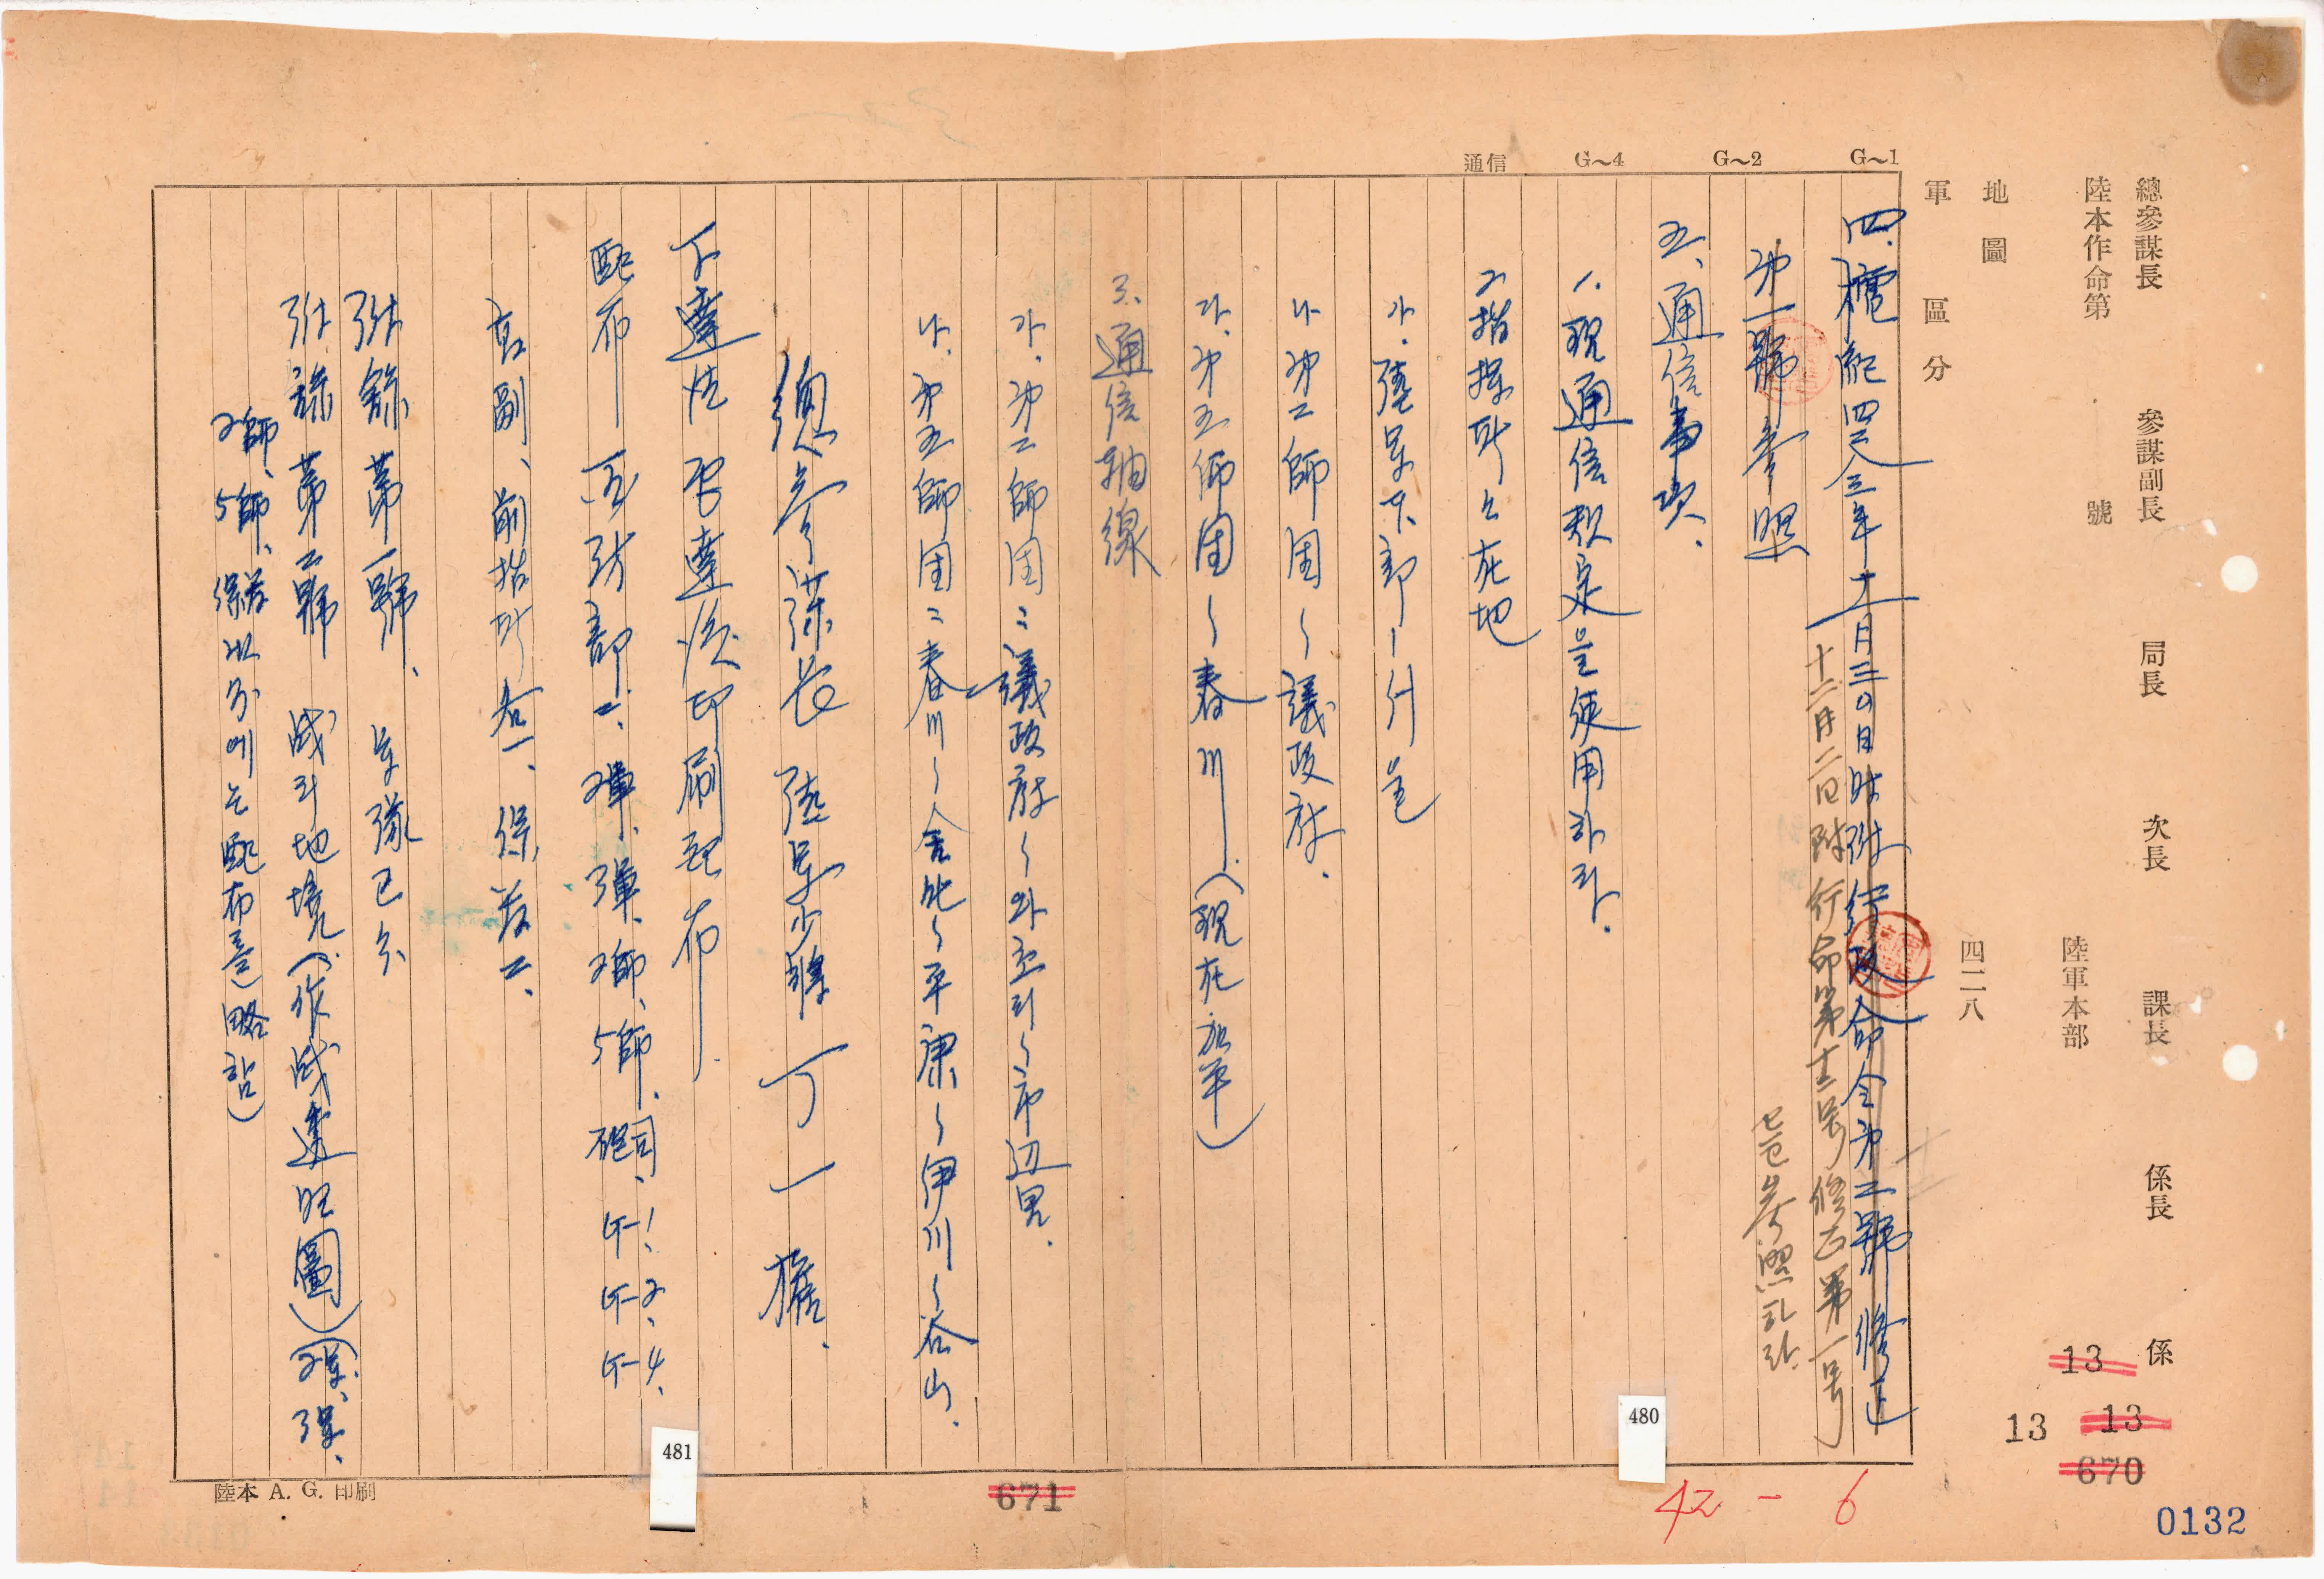 總參謀長 參謀副長 局長 次長 課長 係長 係
陸本作命第 號 陸軍本部
地圖
軍隊區分 四二八
G~1
G~2
G~4
通信
四、檀紀四二八三年十一月三0日附 行政命令第二號 修正
十二月二日附 行命第十二号 修正第一号
第一號 參照
로 参照하라
五、通信事項、
1. 現通信規定을 使用하라.
2. 指揮所所在地
가. 陸軍本部ー서울
나. 第二師團~議政府.
다. 第五師團~春川 (現在加平)
3. 通信軸線
가. 第二師團: 議政府~ ~市辺里.
나. 第五師團: 春川~金化~平康~伊川~谷山.
總參謀長 陸軍少將 丁一權.
下達法 電達後印刷配布.
配布 國防部二、2軍、3軍、2師、5師、砲司、G-1、G-2、G-4、
高副、前指所各一、保存二、
附錄第一號、 軍隊區分
附錄第二號 戰鬪地境 (作戰透明圖) (2軍、3軍、
2師、5師、保存以外에는配布를略함)
13
13
13
670
671
480
481
42-6
0132
陸本 A. G. 印刷